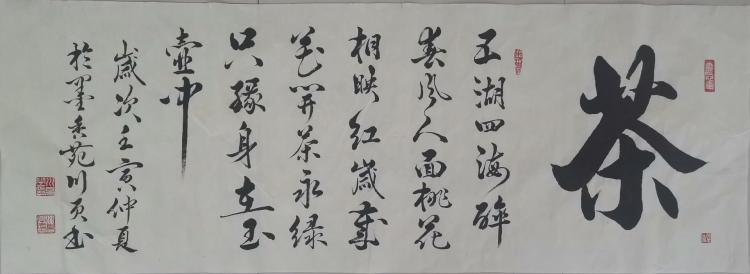 茶
五湖四海醉
春风人面桃花
相映红歲歲
花开茶永绿
只缘身在玉
壶中
歲次壬寅仲夏
於墨香苑川页书